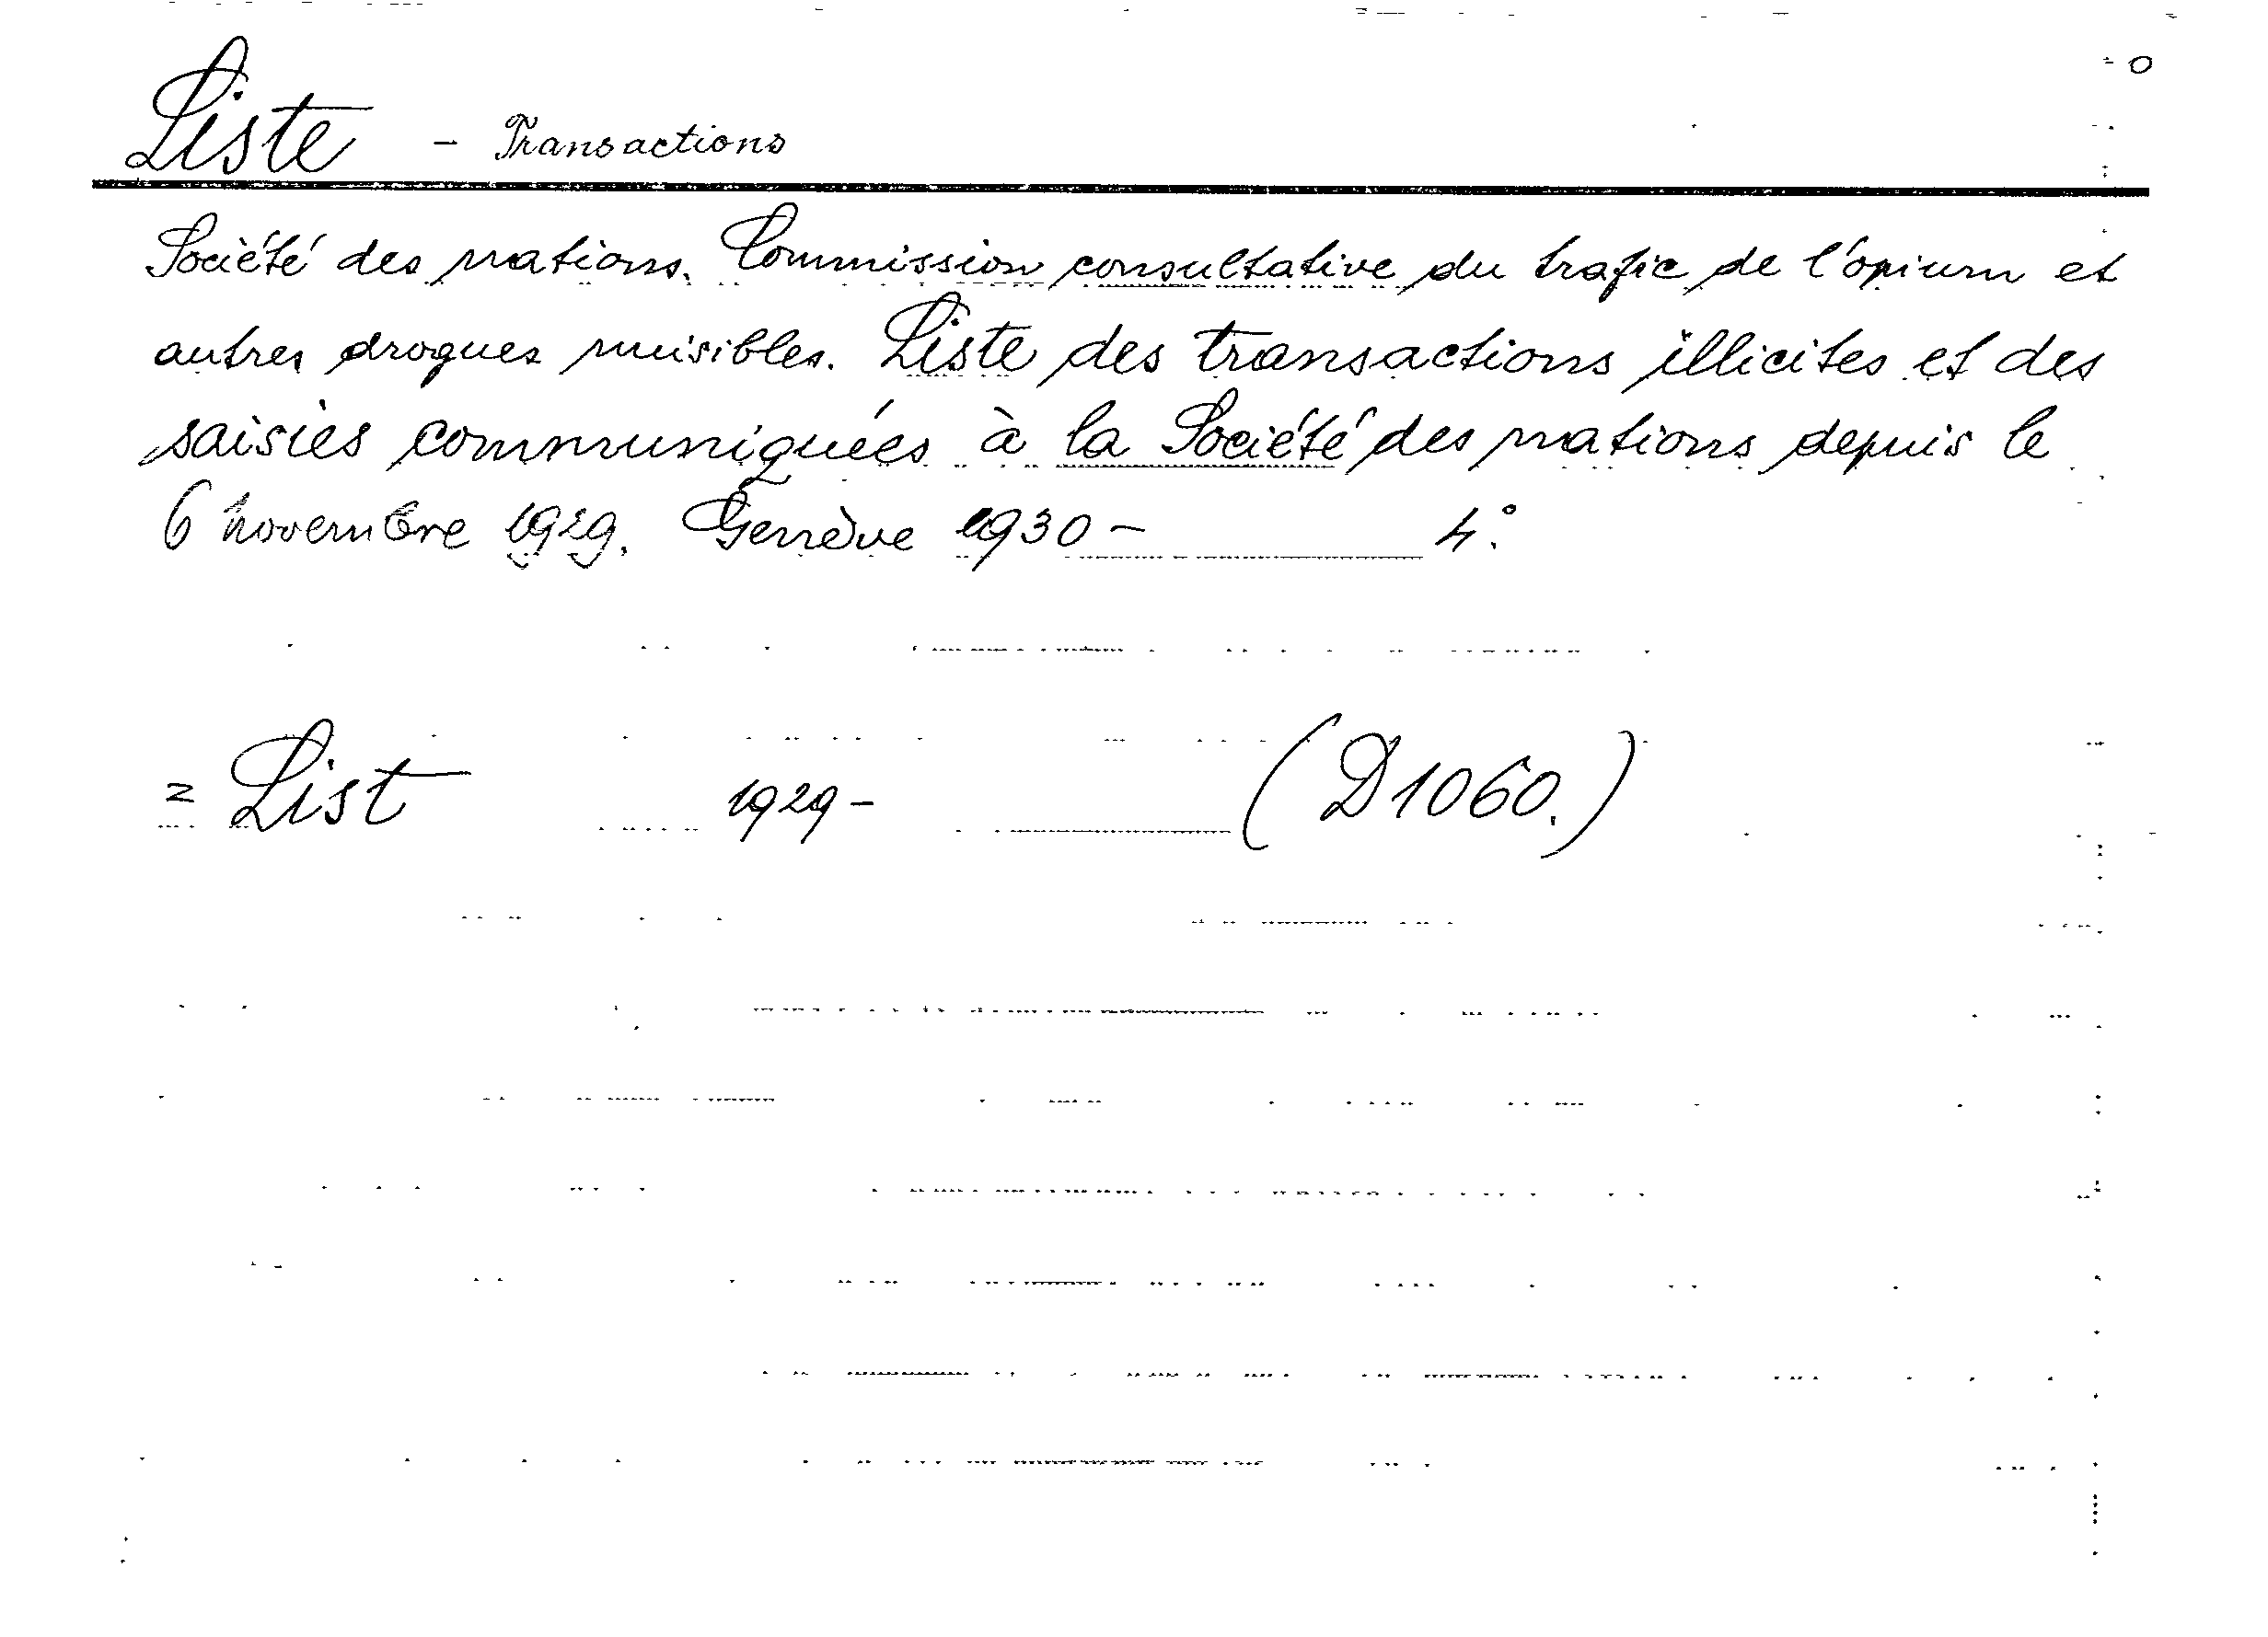 Liste - Transactions
Société des nations. Commission consultative du trafic de l'opium et
autres drogues nuisibles. Liste des transactions illicites et des
saisies communiquées à la Société des nations depuis le
6 novembre 1929. Genève 1930 - 4°.
= List 1929 - (D1060.)